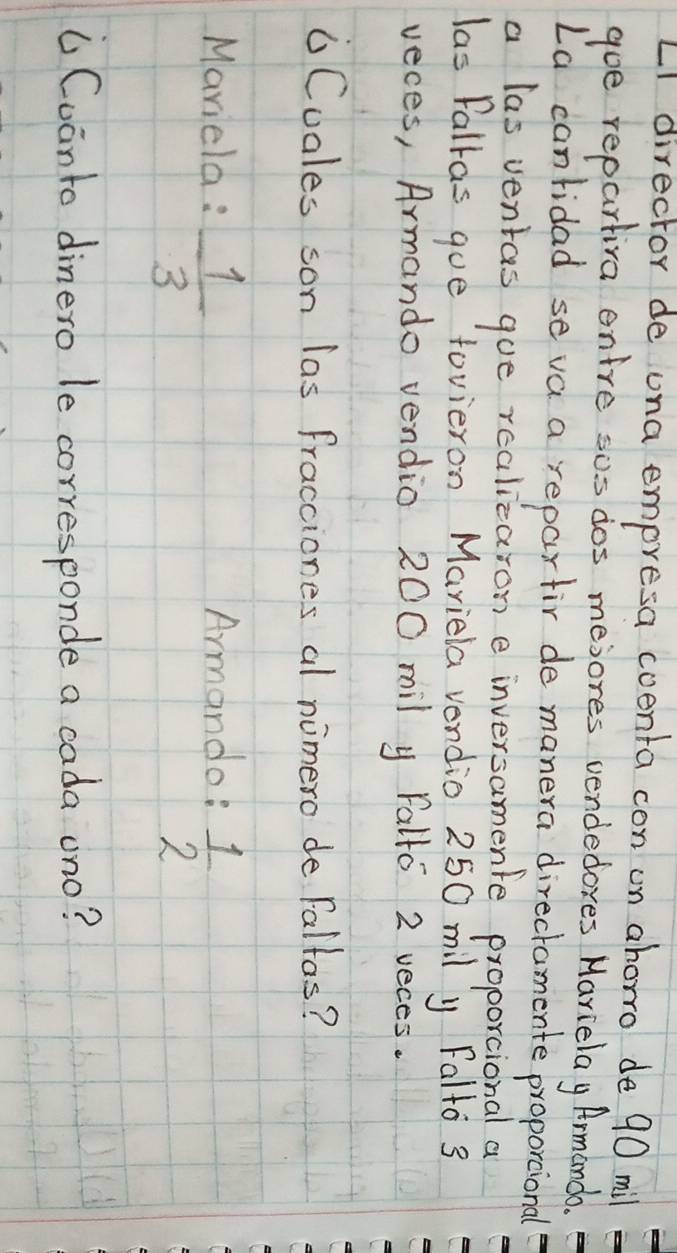 El director de una empresa cuenta con un ahorro de 90 mil
que repartira entre sus dos mejores vendedores Mariela y Armando.
La cantidad se va a repartir de manera directamente proporcional
a las ventas que realizaron e inversamente proporcional a
las faltas que tuvieron Mariela vendio 250 mil y faltó 3
veces, Armando vendio 200 mil y faltó 2 veces.
¿Cuales son las fracciones al número de faltas?
Mariela: 1/3 Armando: 1/2
¿Cuánto dinero le corresponde a cada uno?